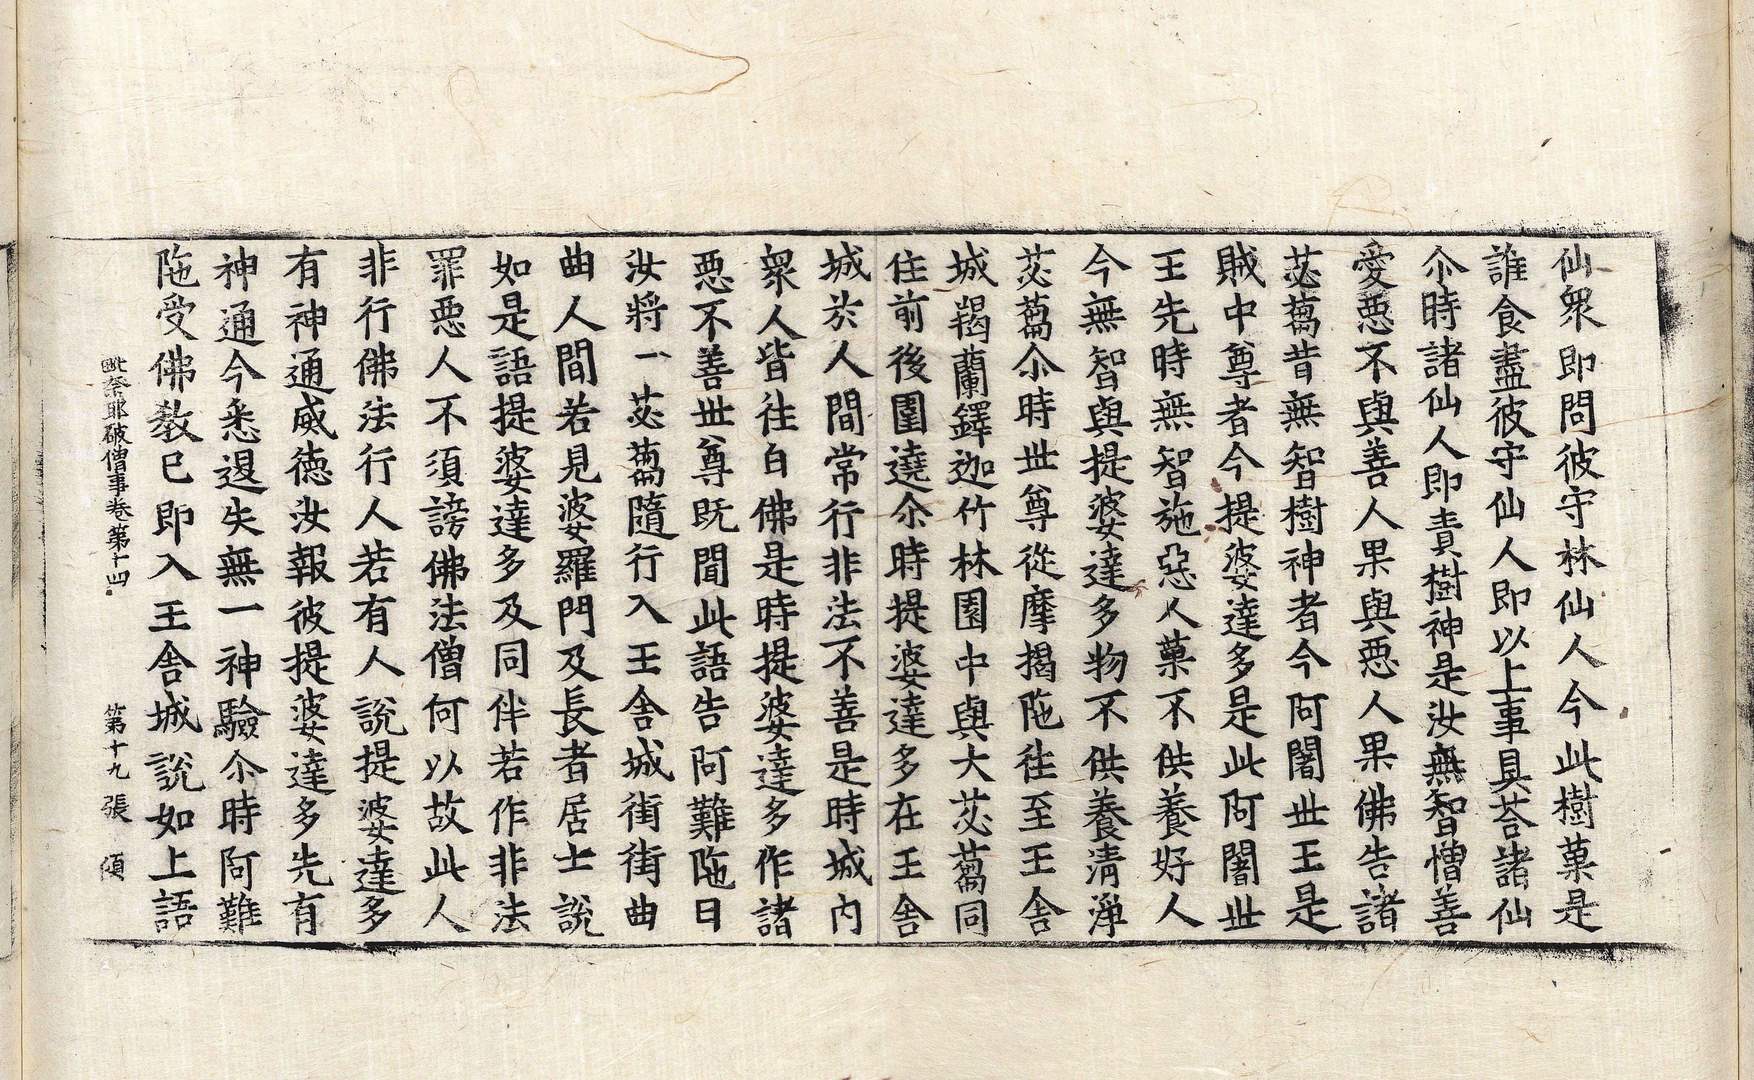 仙衆即問彼守林仙人今此樹菓是
誰食盡彼守仙人即以上事具荅諸仙
尒時諸仙人即責樹神是汝無智憎善
愛惡不與善人果與惡人果佛告諸
苾蒭昔無智樹神者今阿闍世王是
賊中尊者今提婆達多是此阿闍世
王先時無智施惡人菓不供養好人
今無智與提婆達多物不供養清淨
苾蒭尒時世尊從摩揭陁往至王舍
城羯蘭鐸迦竹林園中與大苾蒭同
住前後圍遶尒時提婆達多在王舍
城於人間常行非法不善是時城內
衆人皆往白佛是時提婆達多作諸
惡不善世尊既聞此語告阿難陁曰
汝將一苾蒭隨行入王舍城街街曲
曲人間若見婆羅門及長者居士說
如是語提婆達多及同伴若作非法
罪惡人不須謗佛法僧何以故此人
非行佛法行人若有人說提婆達多
有神通威德汝報彼提婆達多先有
神通今悉退失無一神驗尒時阿難
陁受佛教已即入王舍城說如上語
毗奈耶破僧事卷第十四 第十九張